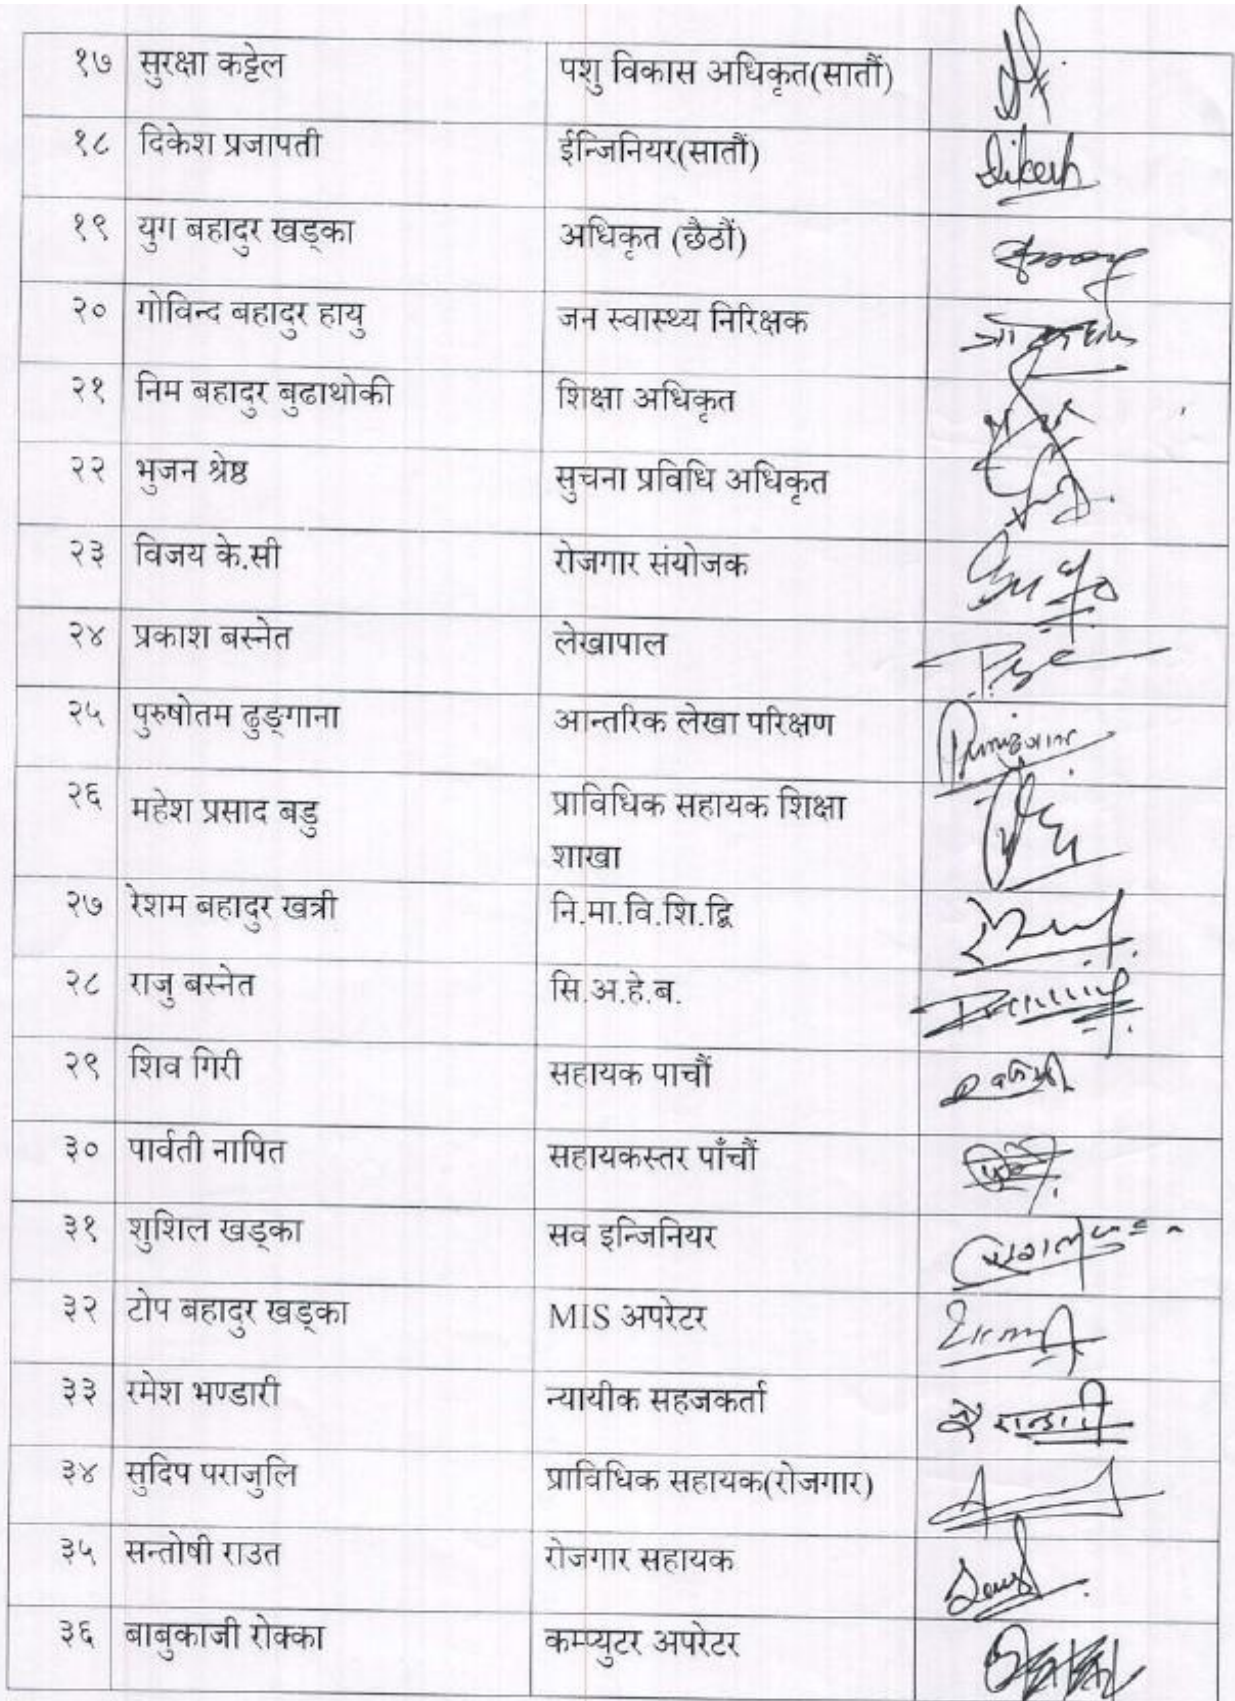 १७ सुरक्षा कट्टेल पशु विकास अधिकृत(सातौं)
१८ दिकेश प्रजापती ईन्जिनियर(सातौं) Dikesh
१९ युग बहादुर खड्का अधिकृत (छैठौं)
२० गोविन्द बहादुर हायु जन स्वास्थ्य निरिक्षक
२१ निम बहादुर बुढाथोकी शिक्षा अधिकृत
२२ भुजन श्रेष्ठ सुचना प्रविधि अधिकृत
२३ विजय के.सी रोजगार संयोजक
२४ प्रकाश बस्नेत लेखापाल
२५ पुरुषोतम ढुङ्गाना आन्तरिक लेखा परिक्षण
२६ महेश प्रसाद बडु प्राविधिक सहायक शिक्षा
शाखा
२७ रेशम बहादुर खत्री नि.मा.वि.शि.द्वि
२८ राजु बस्नेत सि.अ.हे.ब.
२९ शिव गिरी सहायक पाचौं
३० पार्वती नापित सहायकस्तर पाँचौं
३१ शुशिल खड्का सव इन्जिनियर
३२ टोप बहादुर खड्का MIS अपरेटर
३३ रमेश भण्डारी न्यायीक सहजकर्ता
३४ सुदिप पराजुलि प्राविधिक सहायक(रोजगार)
३५ सन्तोषी राउत रोजगार सहायक
३६ बाबुकाजी रोक्का कम्प्युटर अपरेटर